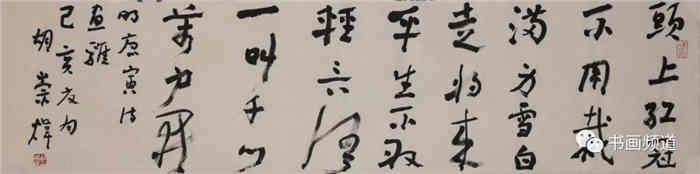 頭上红冠
不用裁
满身雪白
走将来
平生不敢
輕言语
一叫千门
萬户開
明唐寅诗
画雞
己亥夏
胡崇煒
书画频道